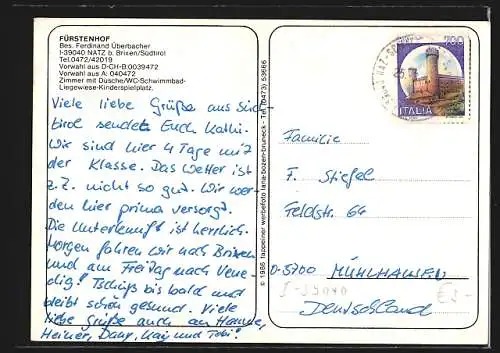 FÜRSTENHOF
Bes. Ferdinand Überbacher
I-39040 NATZ b. Brixen/Südtirol
Tel.0472/42019
Vorwahl aus D-CH-B:0039472
Vorwahl aus A: 040472
Zimmer mit Dusche/WC-Schwimmbad-
Liegewiese-Kinderspielplatz.
Viele liebe Grüße aus Süd-
tirol sendet Euch Kathi.
Wir sind hier 4 Tage mit
der Klasse. Das Wetter ist
z.Z. nicht so gut. Wir wer-
den hier prima versorgt.
Die Unterkunft ist herrlich.
Morgen fahren wir nach Brixen
und am Freitag nach Vene-
dig! Tschüß bis bald und
bleibt schön gesund. Viele
liebe Grüße auch an Hanne,
Heiner, Dany, Kay und Tobi!
© 1986 tappeiner werbefoto lana-bozen-bruneck - Tel. (0473) 53666
700
ITALIA
Familie
F. Stiefel
Feldstr. 64
D-5700 MÜHLHAUSEN
I-39040
Deutschland